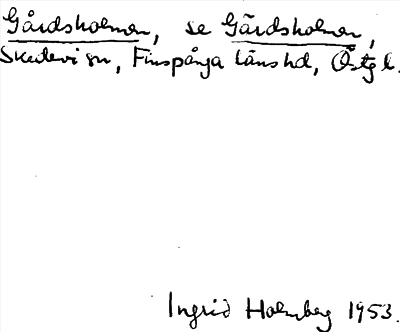 Gårdsholmen, se Gärdsholmen,
Skedevi sn, Finspånga läns hd, Östg l.
Ingrid Holmberg 1953.